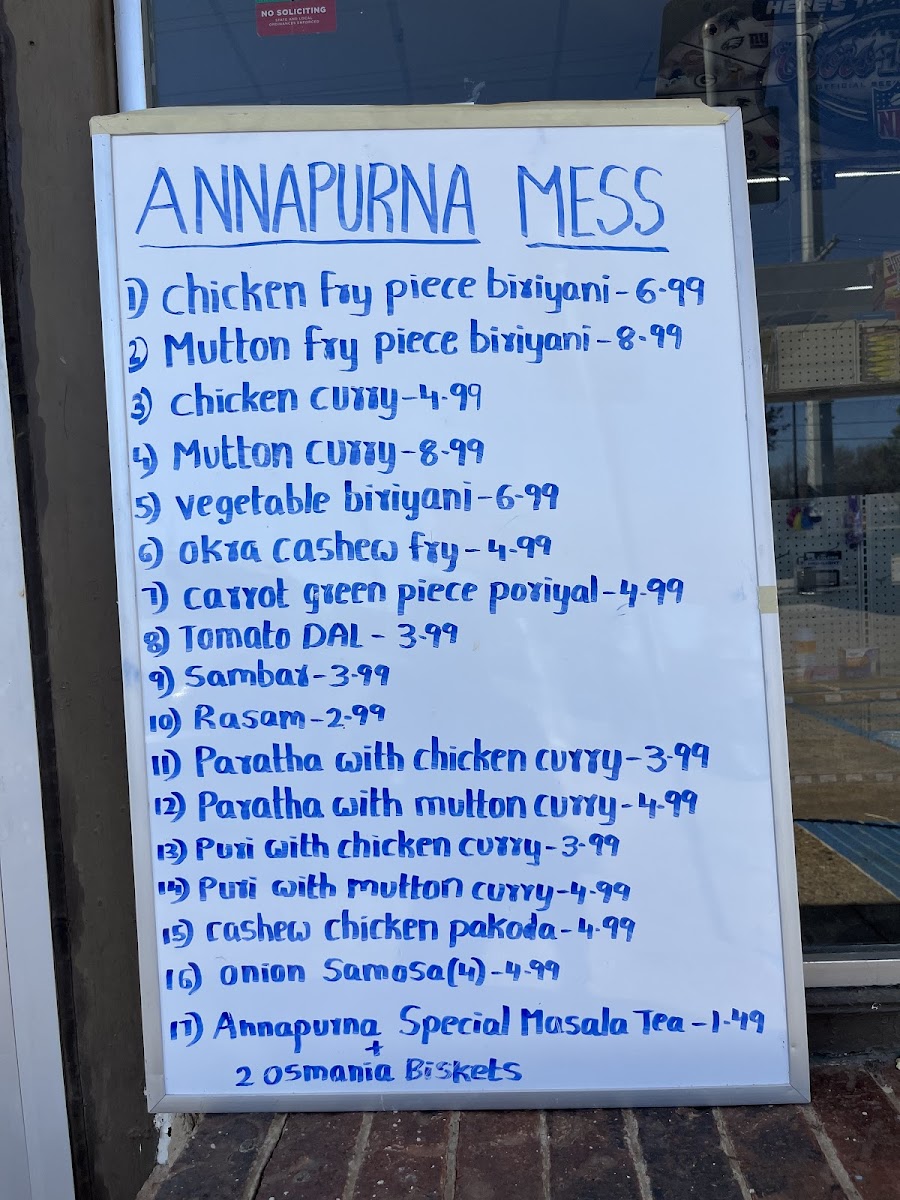 NO SOLICITING
STATE AND LOCAL
ORDINANCES ENFORCED
HERE'S
Coors
OFFICIAL BEE
NFL
ANNAPURNA MESS
1) chicken fry piece biriyani - 6.99
2) Mutton fry piece biriyani - 8.99
3) chicken curry - 4.99
4) Mutton curry - 8.99
5) vegetable biriyani - 6.99
6) okra cashew fry - 4.99
7) carrot green piece poriyal - 4.99
8) Tomato DAL - 3.99
9) Sambar - 3.99
10) Rasam - 2.99
11) Paratha with chicken curry - 3.99
12) Paratha with mutton curry - 4.99
13) Puri with chicken curry - 3.99
14) Puri with mutton curry - 4.99
15) cashew chicken pakoda - 4.99
16) onion Samosa(4) - 4.99
17) Annapurna Special Masala Tea - 1.49
+
2 Osmania Biskets